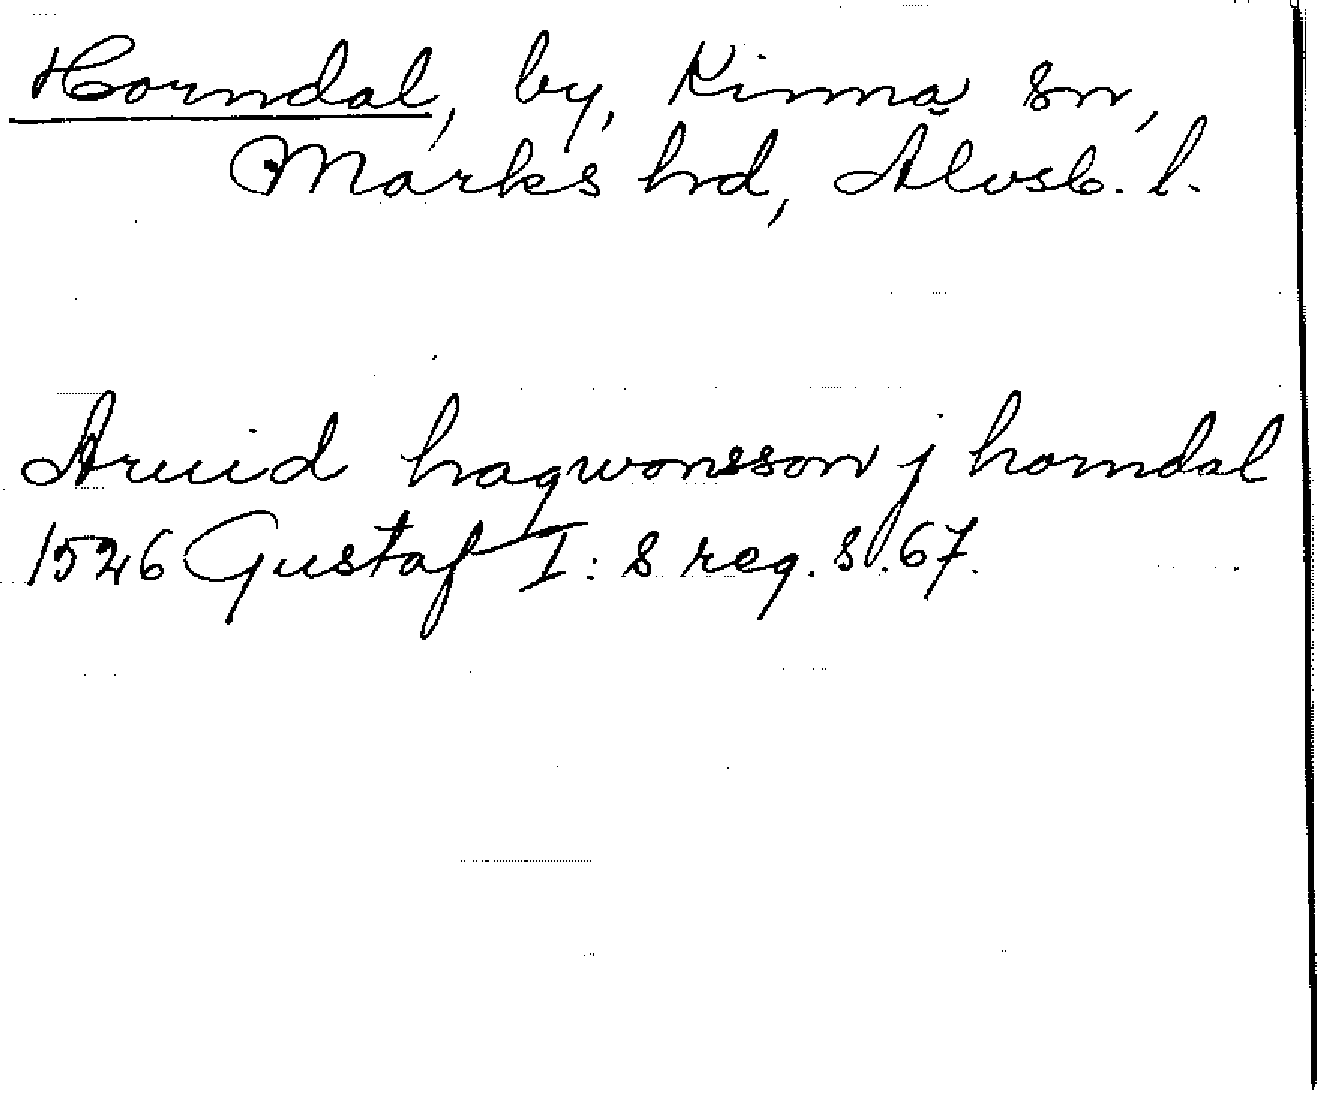 Horndal, by, Kinna sn,
Marks hd, Älvsb. l.
Arvid hagwonsson j horndal
1526 Gustaf I:s reg. s. 67.